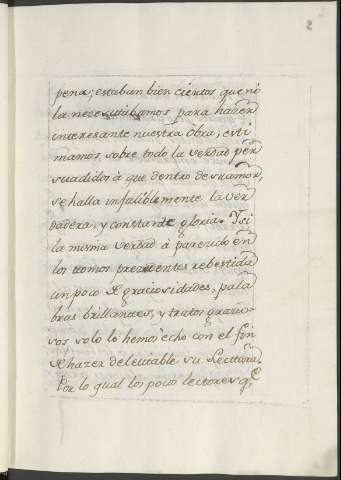 pena; estaban bien ciertos, que nó
la necesitábamos para hazer
interesante nuestra óbra, esti
mamos, sobre todo la verdad per
suadidos à que dentro de su amor,
se halla infaliblemente la ver
dadera, y constante gloria. Y si
la misma verdad à parecido en
los tomos prezedentes rebestida
un poco de graciosidades, pala
bras brillantes, y tratos gracio
sos solo lo hemos écho con el fin
de hazer deleitable su Lectura.
Por lo qual los pocos lectores q.e